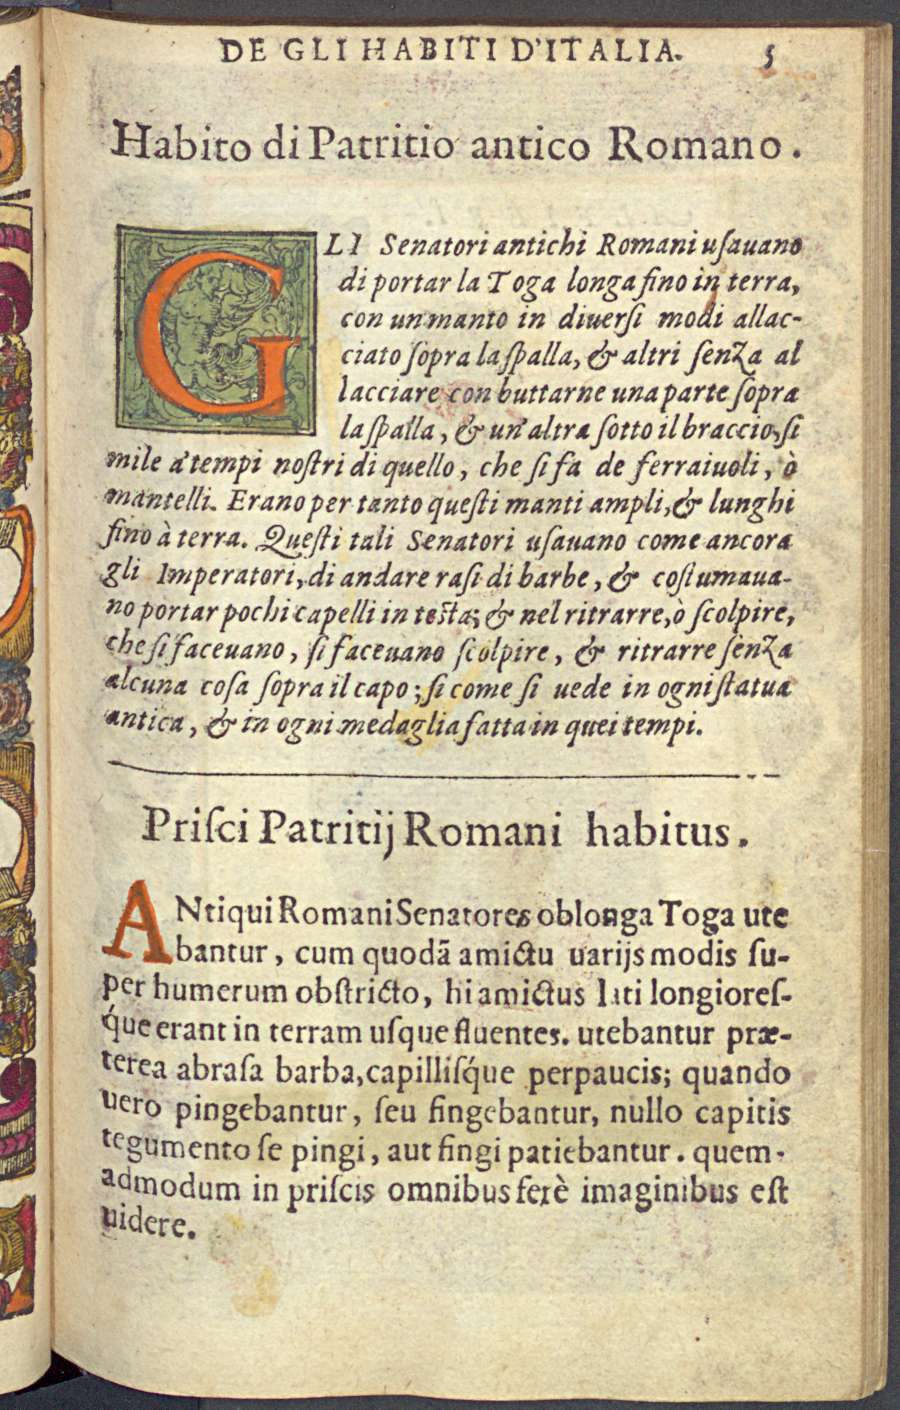 DE GLI HABITI D'ITALIA. 5
Habito di Patritio antico Romano.
GLI Senatori antichi Romani uſauano
di portar la Toga longa fino in terra,
con un manto in diuerſi modi allac-
ciato ſopra la ſpalla, & altri ſenza al
lacciare con buttarne una parte ſopra
la ſpalla, & un'altra ſotto il braccio, ſi
mile a' tempi noſtri di quello, che ſi fa de ferraiuoli, ò
mantelli. Erano per tanto queſti manti ampli, & lunghi
fino à terra. Queſti tali Senatori uſauano come ancora
gli Imperatori, di andare raſi di barbe, & coſtumaua-
no portar pochi capelli in teſta; & nel ritrarre, ò ſcolpire,
che ſi faceuano, ſi faceuano ſcolpire, & ritrarre ſenza
alcuna coſa ſopra il capo; ſi come ſi uede in ogni ſtatua
antica, & in ogni medaglia fatta in quei tempi.
Priſci Patritij Romani habitus.
ANtiqui Romani Senatores oblonga Toga ute
bantur, cum quodã amictu uarijs modis ſu-
per humerum obſtricto, hi amictus lati longioreſ-
q́ue erant in terram uſque fluentes. utebantur præ-
terea abraſa barba, capilliſq́ue perpaucis; quando
uero pingebantur, ſeu fingebantur, nullo capitis
tegumento ſe pingi, aut fingi patiebantur. quem-
admodum in priſcis omnibus ferè imaginibus eſt
uidere.